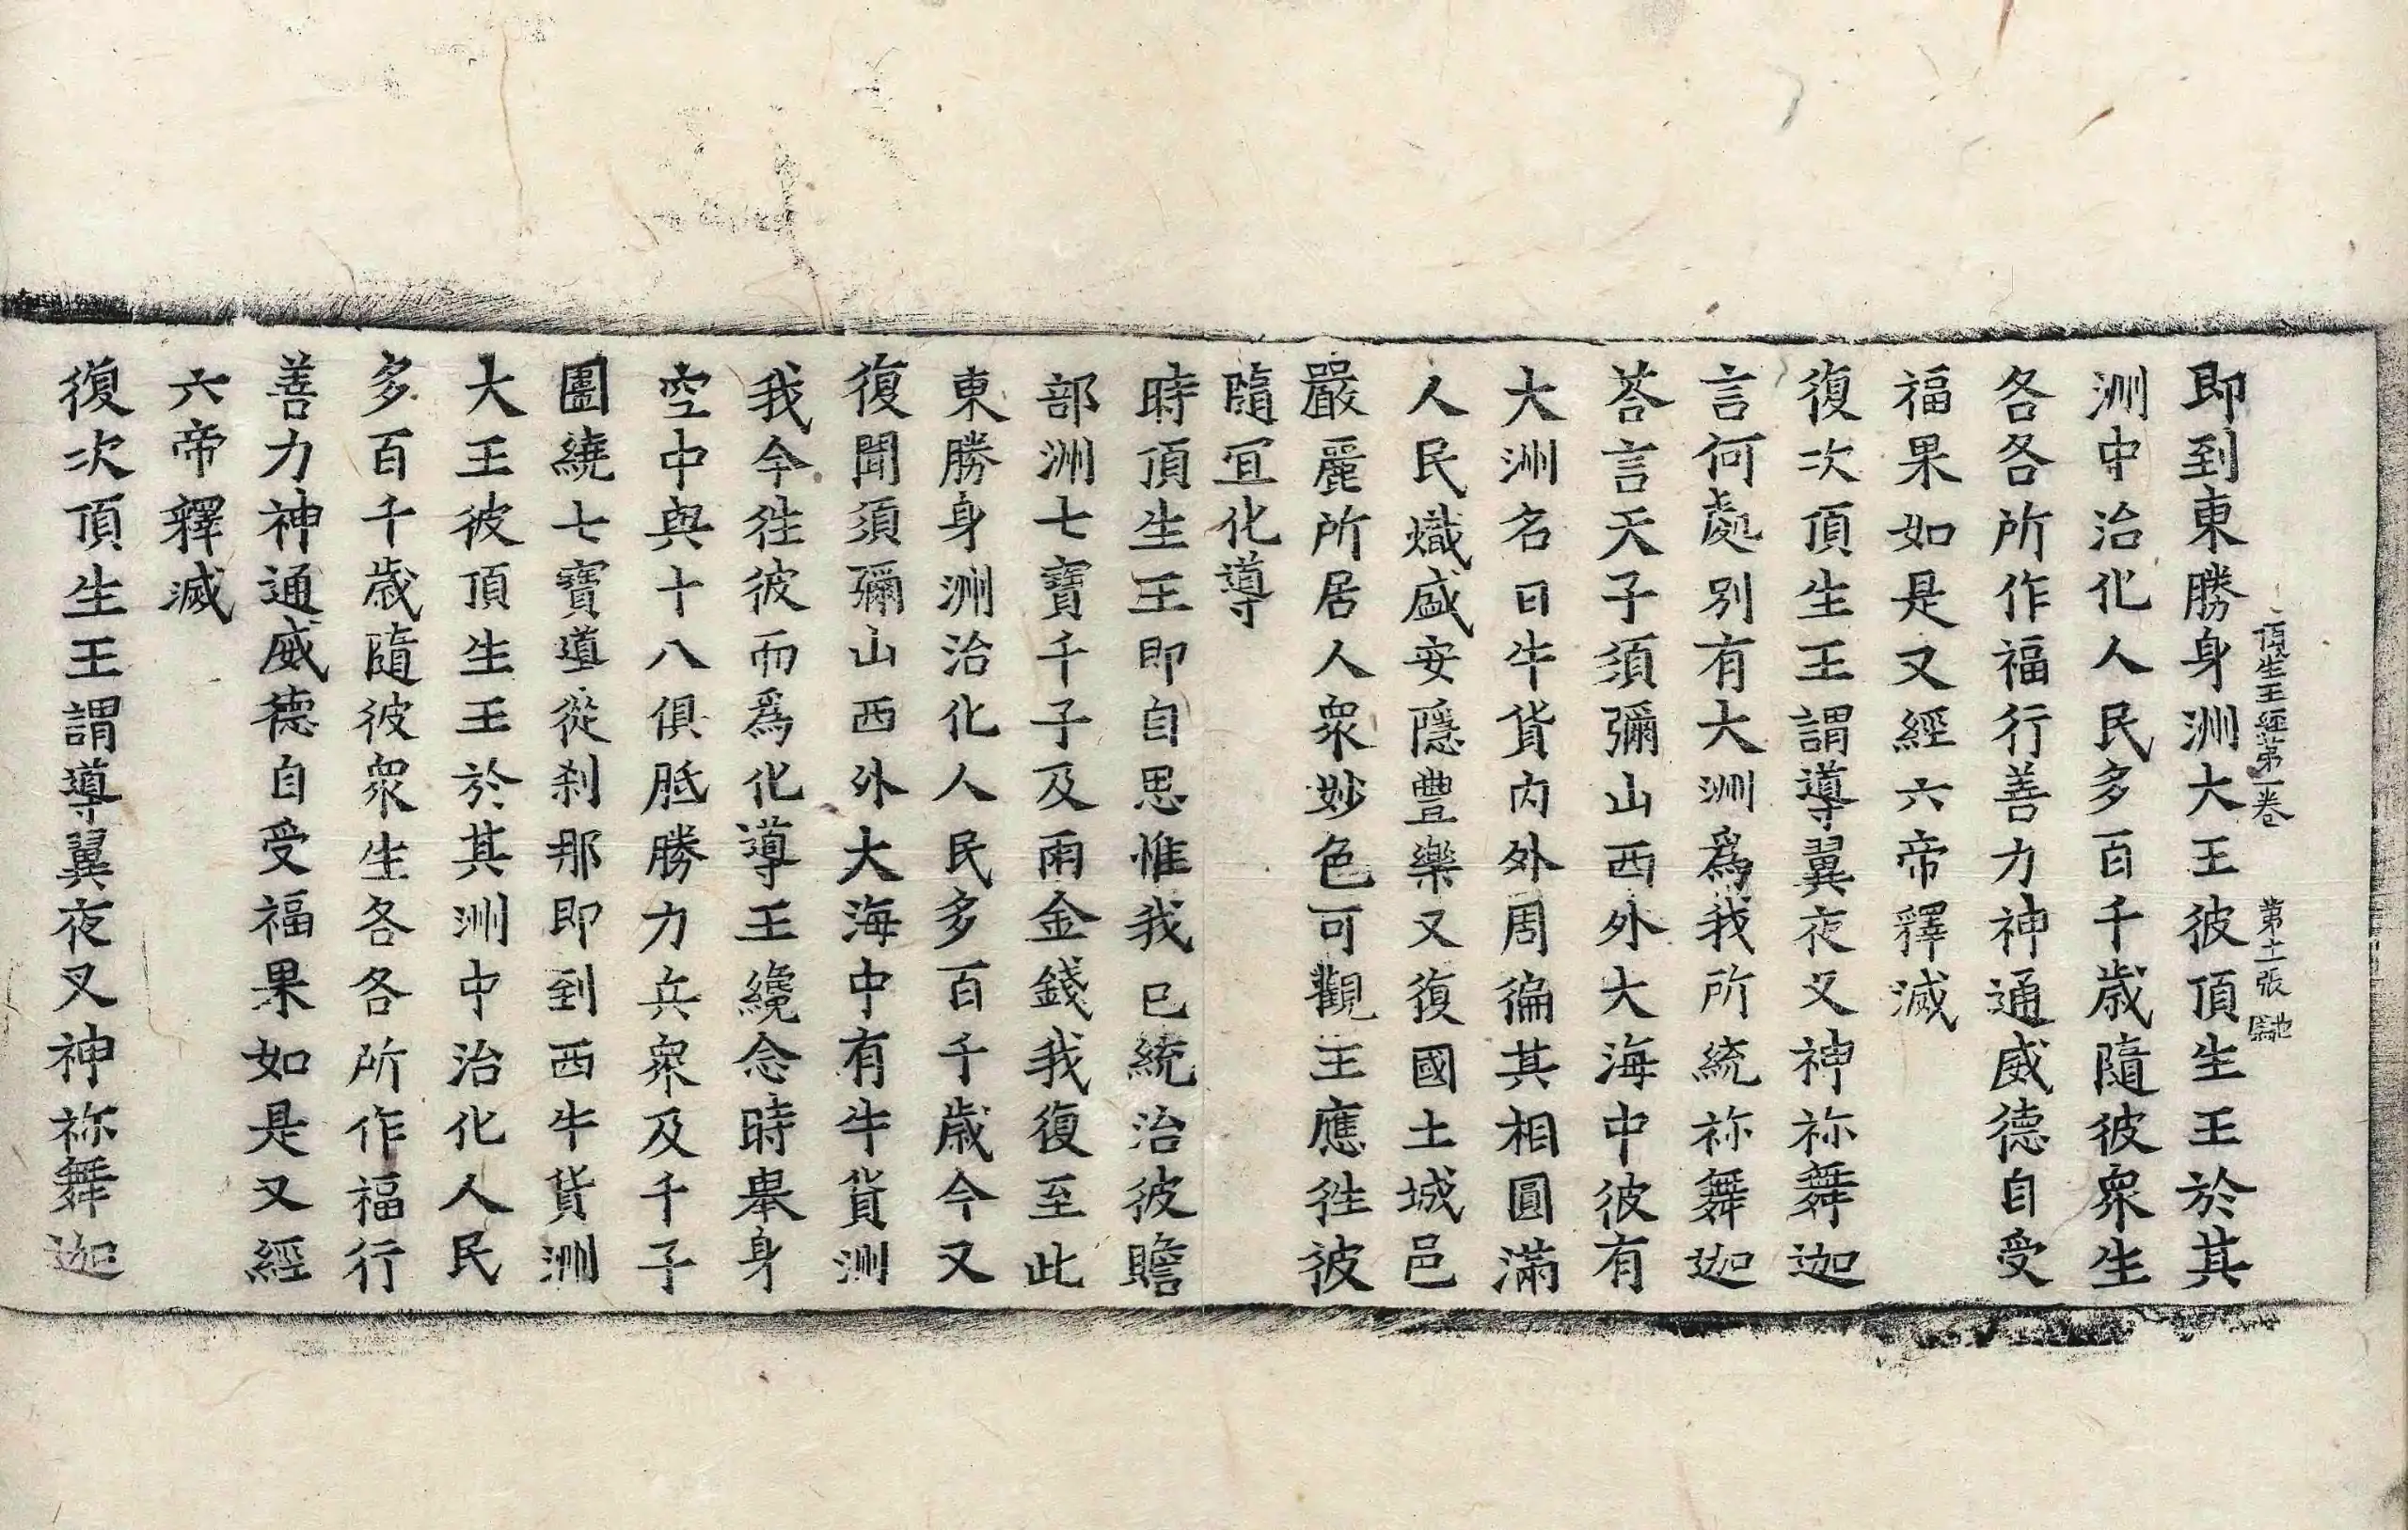 頂生王經第一卷　第十二張
即到東勝身洲大王彼頂生王於其
洲中治化人民多百千歲隨彼衆生
各各所作福行善力神通威德自受
福果如是又經六帝釋滅
復次頂生王謂導翼夜叉神祢舞迦
言何處別有大洲爲我所統祢舞迦
荅言天子須彌山西外大海中彼有
大洲名曰牛貨内外周徧其相圓滿
人民熾盛安隱豐樂又復國土城邑
嚴麗所居人衆妙色可觀王應徃彼
隨宜化導
時頂生王即自思惟我已統治彼贍
部洲七寶千子及雨金錢我復至此
東勝身洲治化人民多百千歲今又
復聞須彌山西外大海中有牛貨洲
我今徃彼而爲化導王纔念時舉身
空中與十八俱胝勝力兵衆及千子
圍繞七寶導從刹那即到西牛貨洲
大王彼頂生王於其洲中治化人民
多百千歲隨彼衆生各各所作福行
善力神通威德自受福果如是又經
六帝釋滅
復次頂生王謂導翼夜叉神祢舞迦